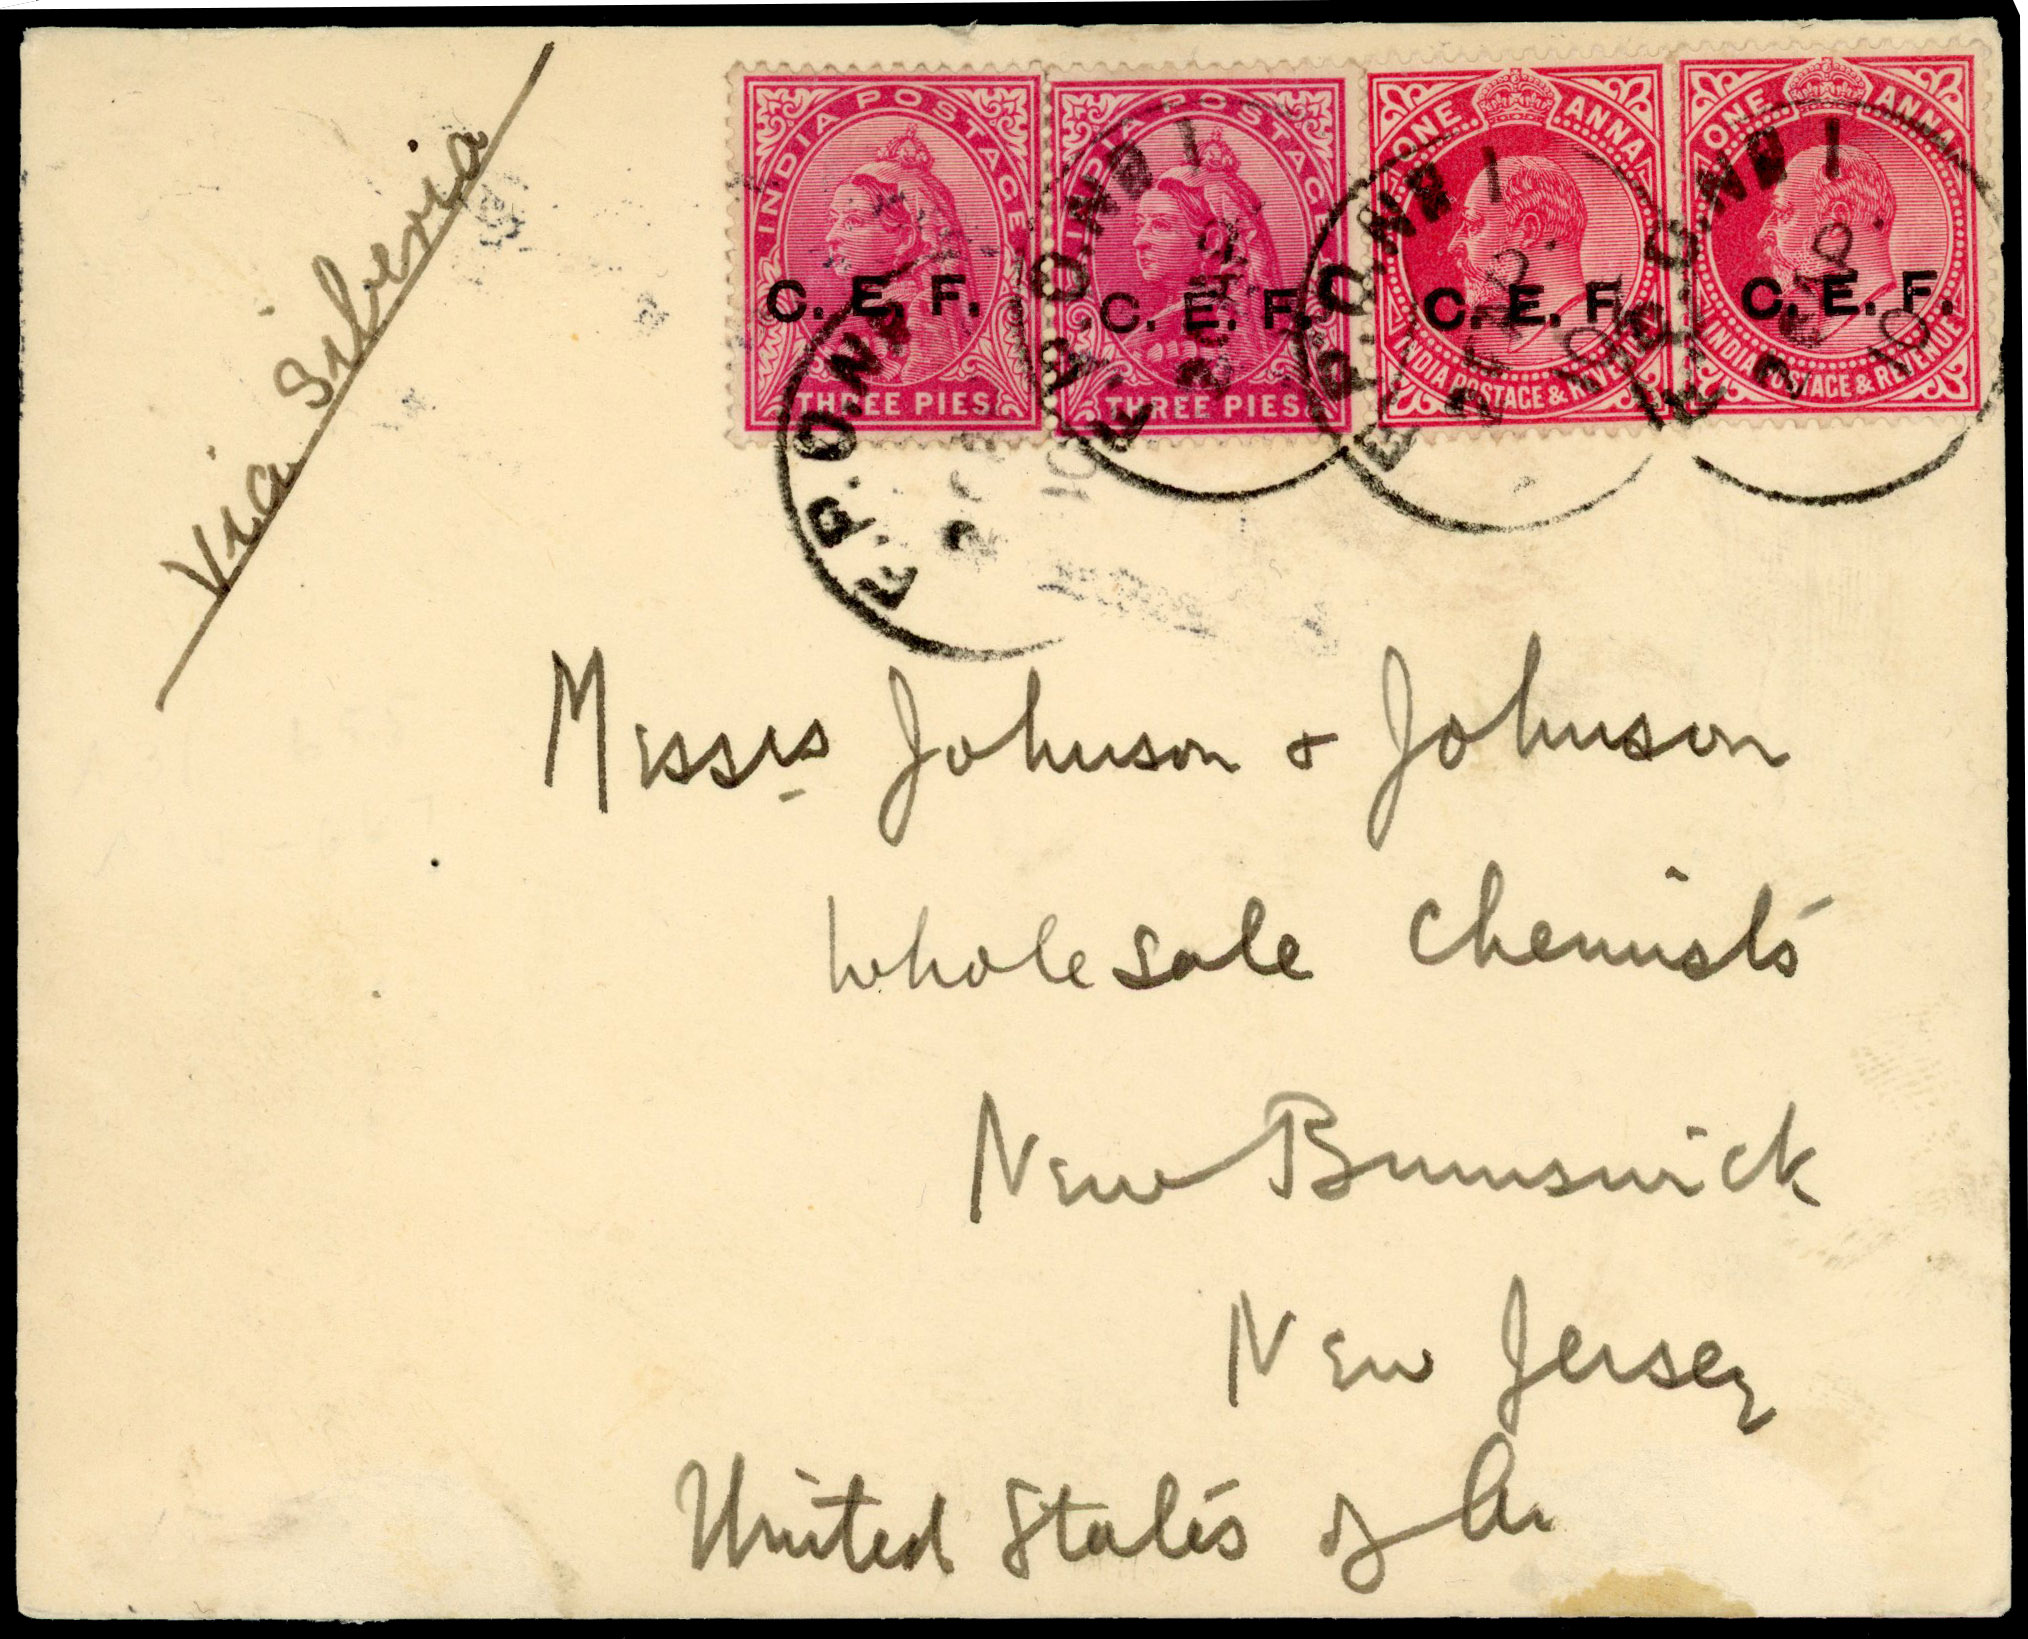 Via Siberia
INDIA POSTAGE
C. E. F.
THREE PIES
INDIA POSTAGE
C. E. F.
THREE PIES
ONE ANNA
C. E. F.
INDIA POSTAGE & REVENUE
ONE ANNA
C. E. F.
INDIA POSTAGE & REVENUE
F.P.O.No
F.P.O.No 1
F.P.O.No 1
10
F.P.O.No 1
10
Messrs Johnson & Johnson
Wholesale Chemists
New Brunswick
New Jersey
United States of A.